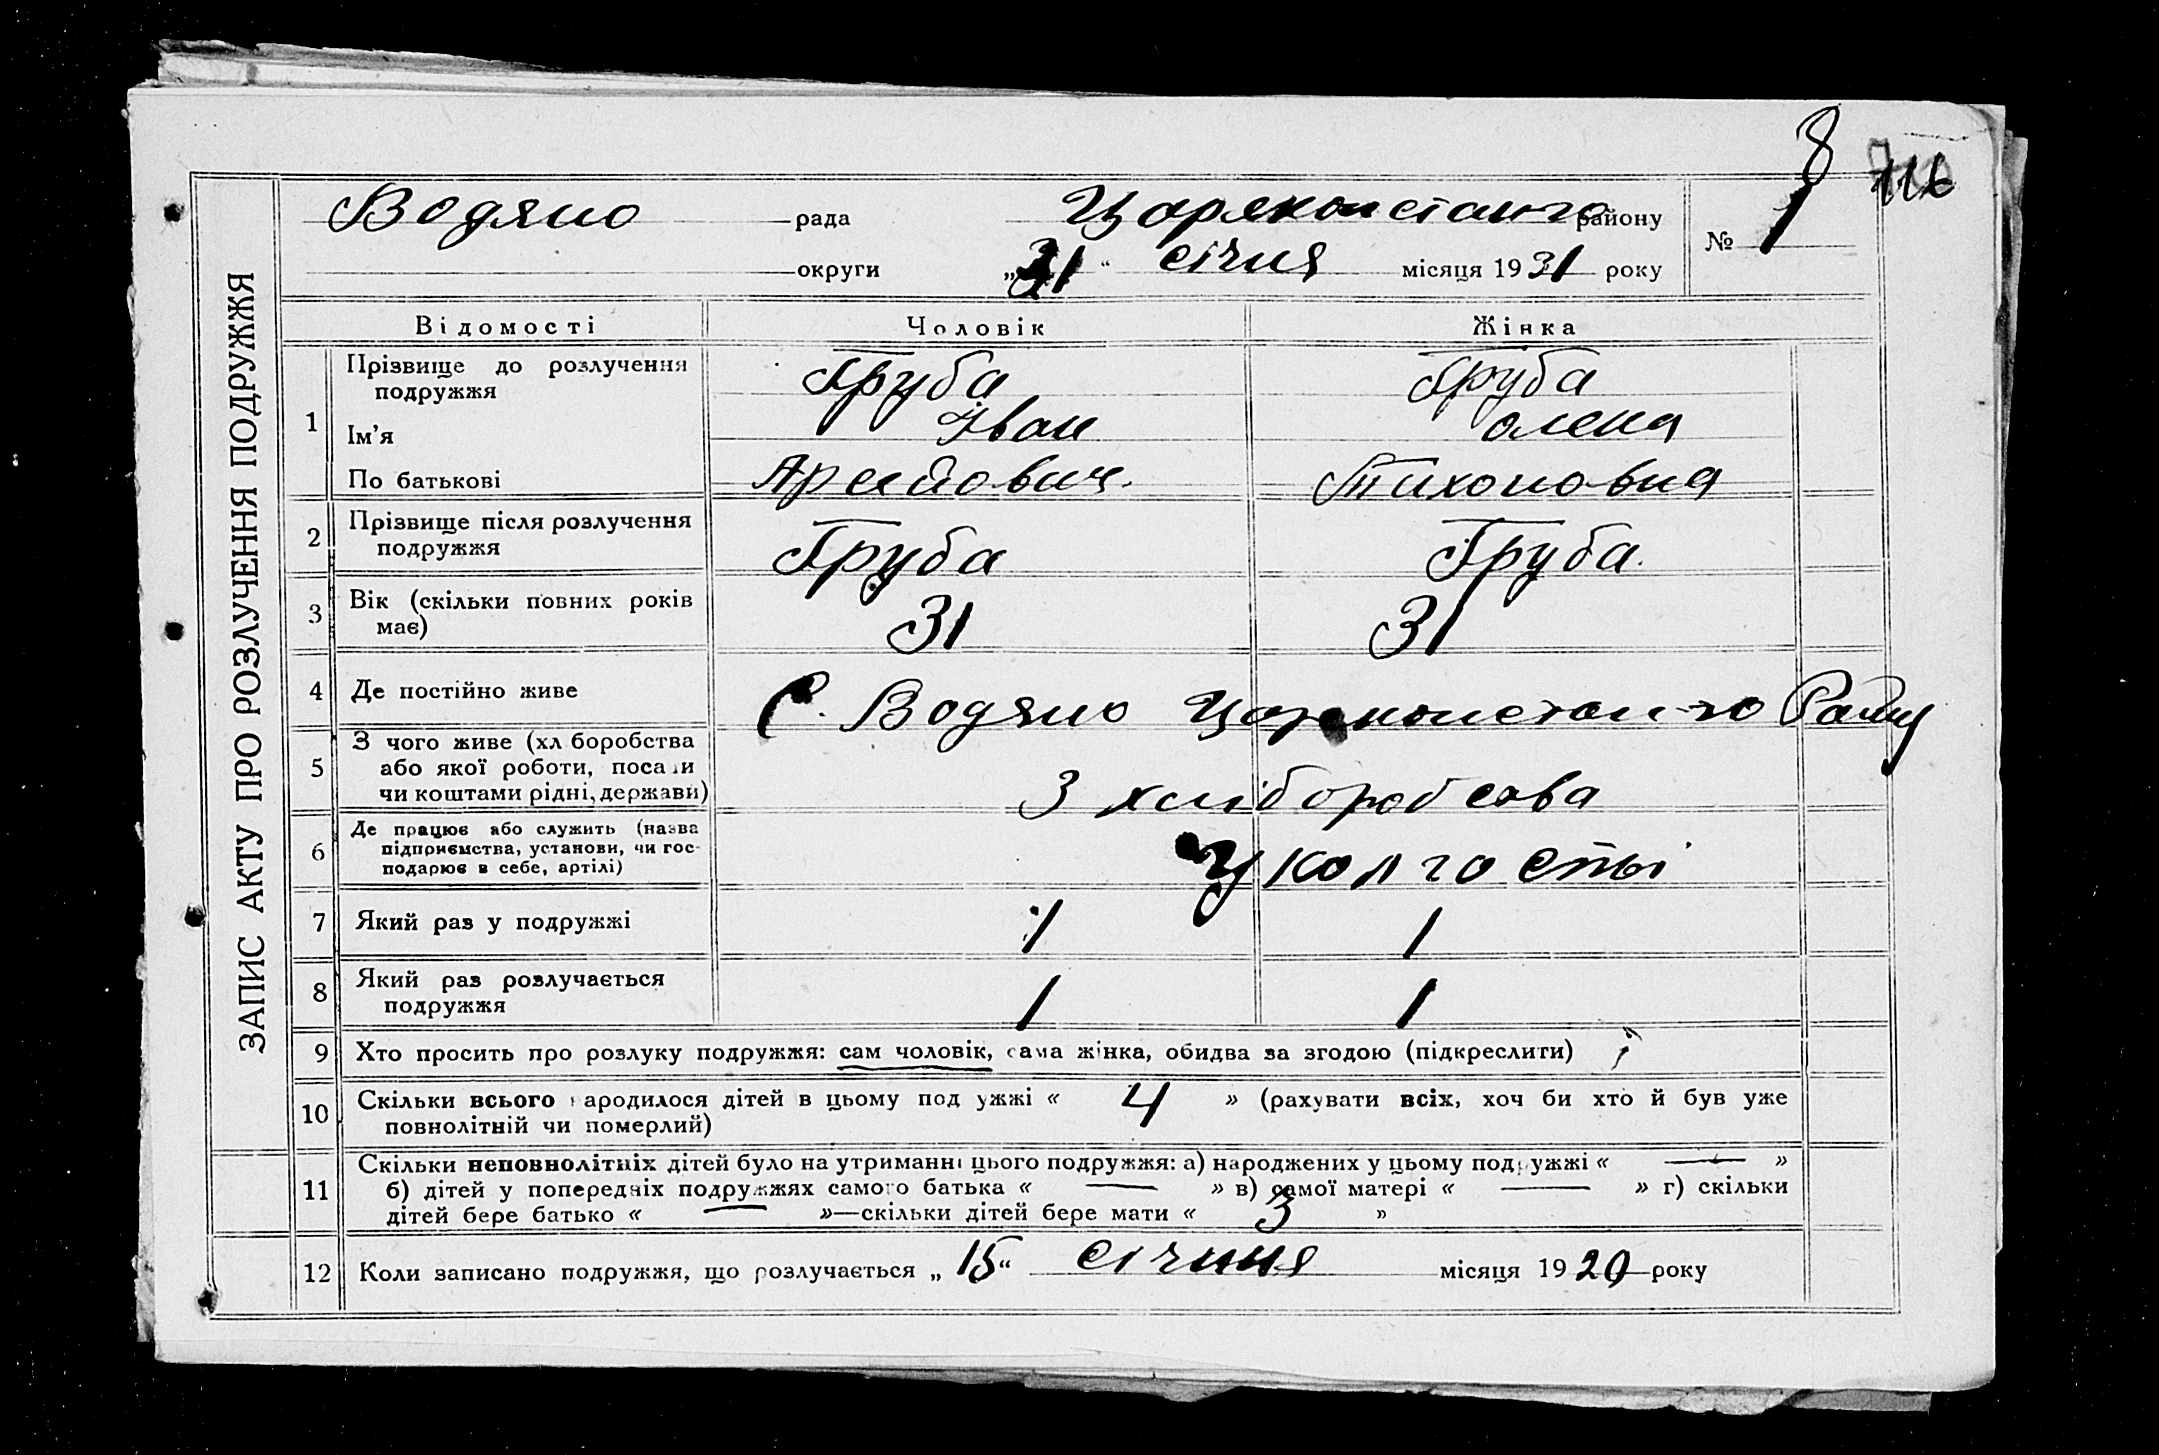 8
116
ЗАПИС АКТУ ПРО РОЗЛУЧЕННЯ ПОДРУЖЖЯ
Водяно рада Царекостанто району № 1
округи „31“ січня місяця 1931 року
Відомості Чоловік Жінка
1 Прізвище до розлучення подружжя Груба Груба
Ім’я Іван олена
По батькові Тихоновна
2 Прізвище після розлучення подружжя Груба Груба.
3 Вік (скільки повних років має) 31 31
4 Де постійно живе С. Водяно
5 З чого живе (хл боробства або якої роботи, посади чи коштами рідні, держави) З хліборобства
6 Де працює або служить (назва підприємства, установи, чи господарює в себе, артілі) У колгості
7 Який раз у подружжі 1 1
8 Який раз розлучається подружжя 1 1
9 Хто просить про розлуку подружжя: сам чоловік, сама жінка, обидва за згодою (підкреслити)
10 Скільки всього народилося дітей в цьому подружжі « 4 » (рахувати всіх, хоч би хто й був уже
повнолітній чи померлий)
11 Скільки неповнолітніх дітей було на утриманні цього подружжя: а) народжених у цьому подружжі « — »
б) дітей у попередніх подружжях самого батька « — » в) самої матері « — » г) скільки
дітей бере батько « — »—скільки дітей бере мати « 3 »
12 Коли записано подружжя, що розлучається „15“ січння місяця 1920 року